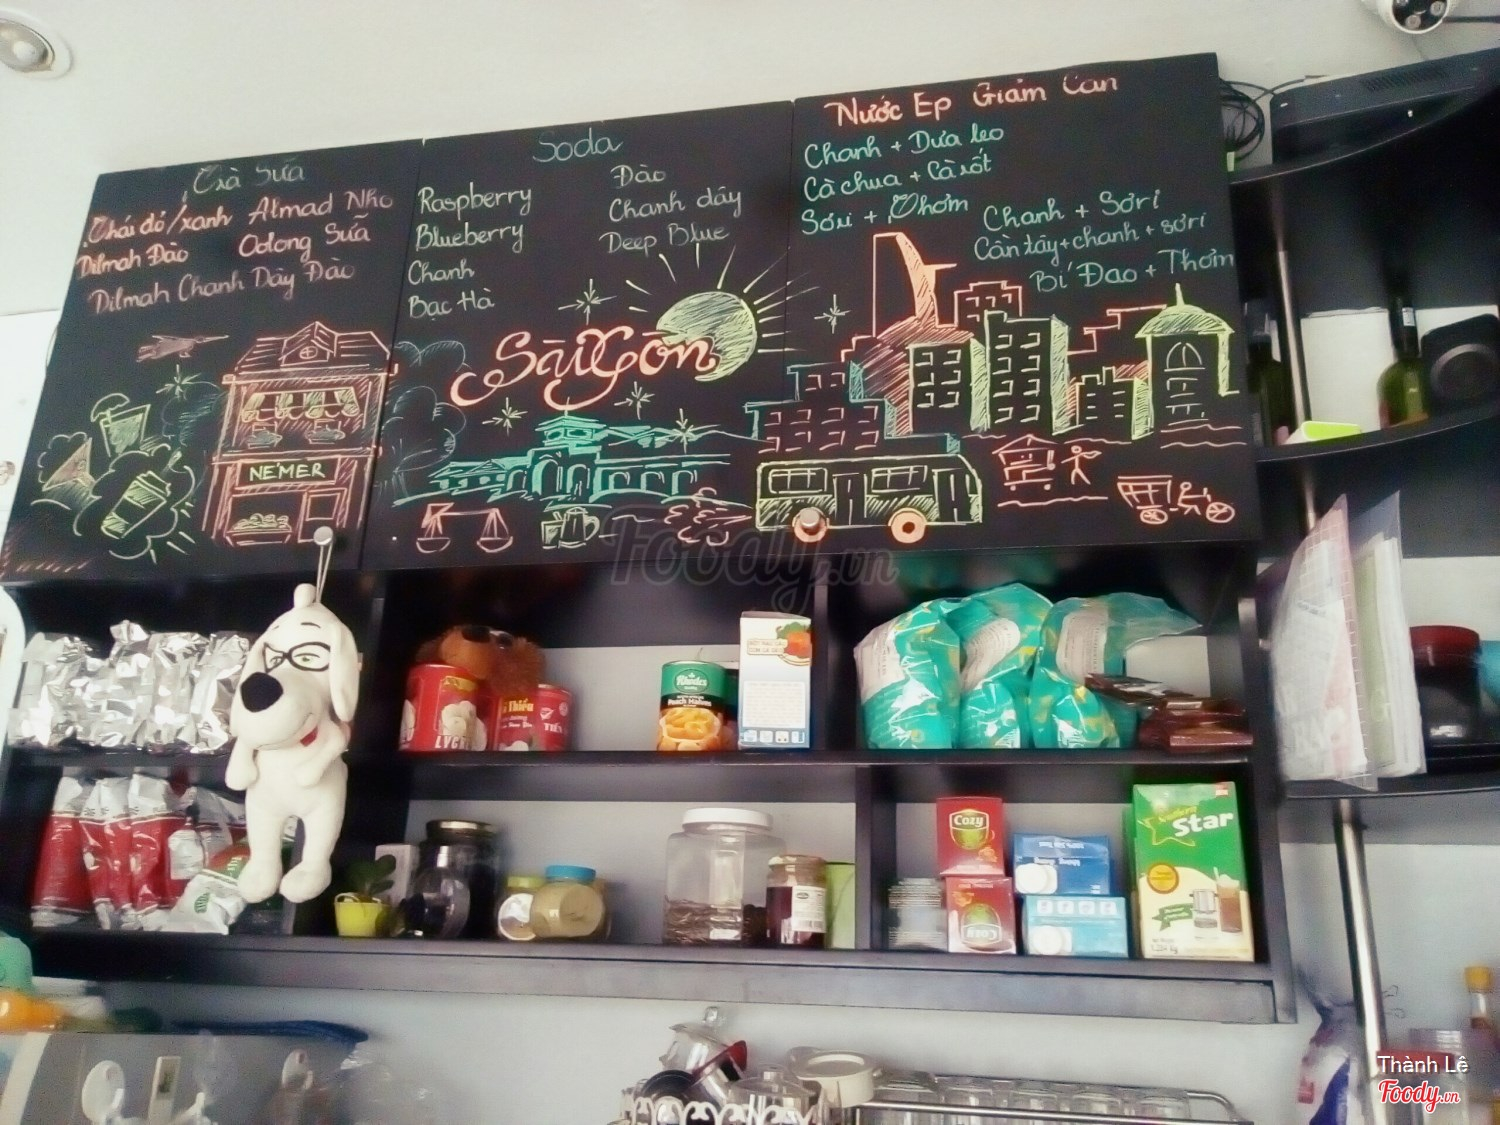 Trà Sữa
Thái đỏ/xanh
Almad Nho
Dilmah Đào
Oolong Sữa
Dilmah Chanh Dây Đào
Soda
Raspberry
Blueberry
Chanh
Bạc Hà
Đào
Chanh dây
Deep Blue
Nước Ep Giảm Cân
Chanh + Dưa leo
Cà chua + Cà rốt
Sơri + Thơm
Chanh + Sơri
Cần tây+chanh+sơri
Bí Đao + Thơm
SàiGòn
NE'MER
Foody.vn
Rhodes
Peach Halves
LYCHEE
Cozy
Cozy
Star
Thành Lê
Foody.vn